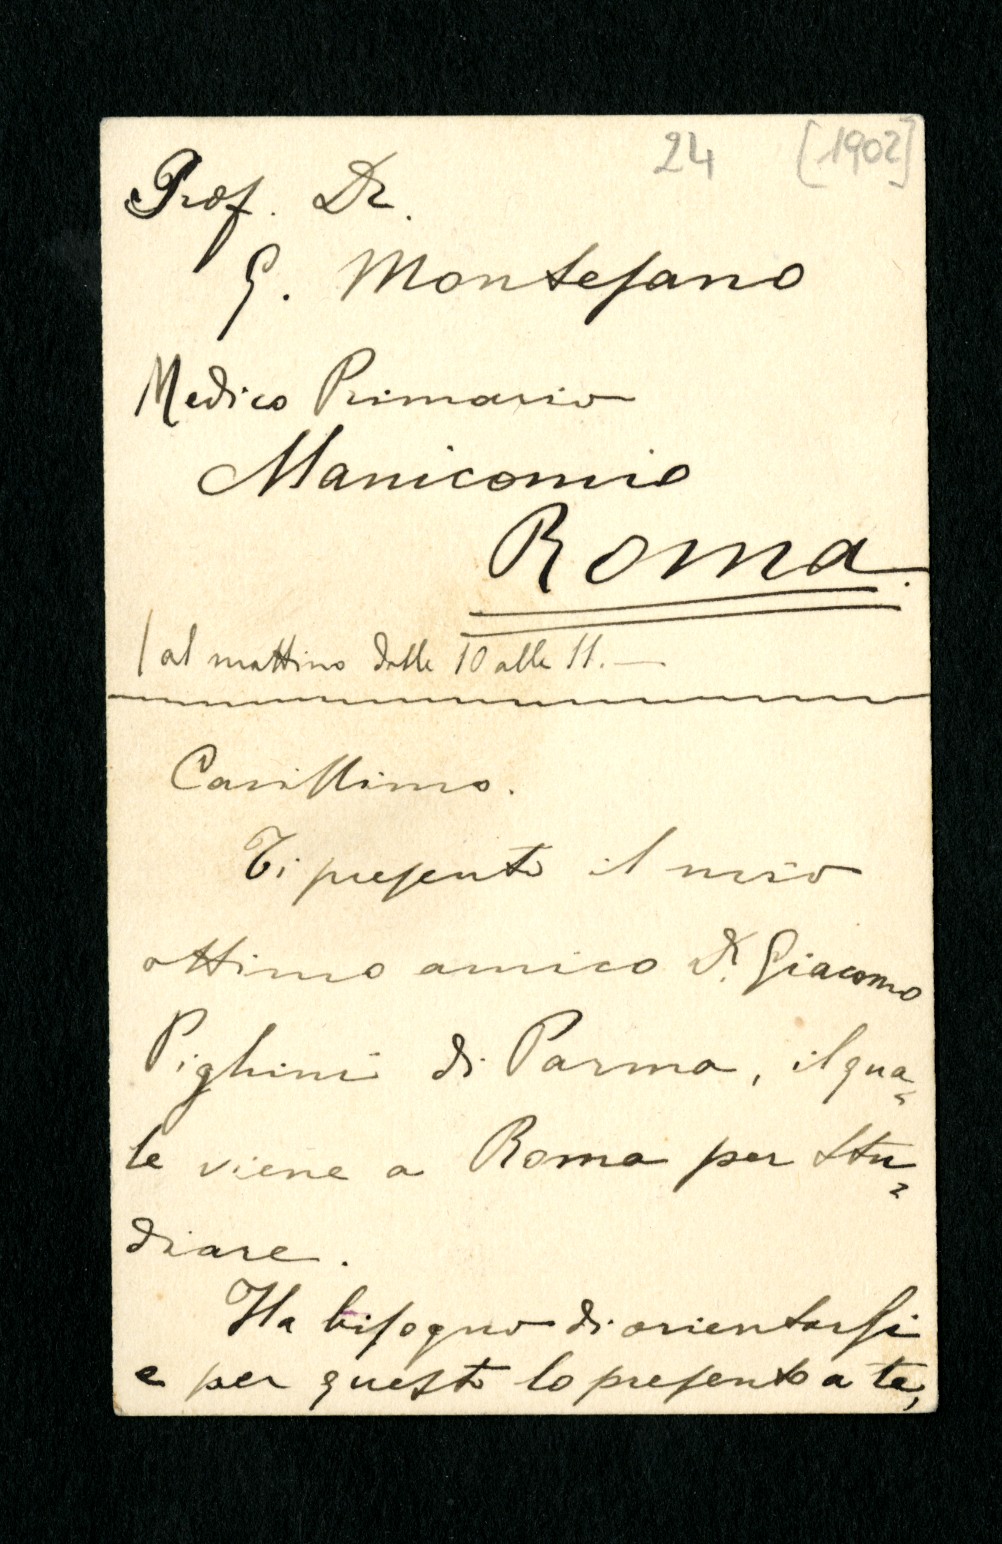 24 [1902]
Prof. Dr.
G. Montesano
Medico Primario
Manicomio
Roma.
/ al mattino dalle 10 alle 11. —
Carissimo.
Ti presento il mio
ottimo amico Dr. Giacomo
Pighini di Parma, il qua-
le viene a Roma per stu-
diare.
Ha bisogno di orientarsi
e per questo lo presento a te,